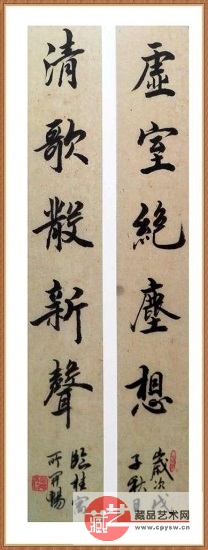 虛室絕塵想
歲次戊子秋月
清歌散新聲
藏品艺术网
www.cpysw.cn